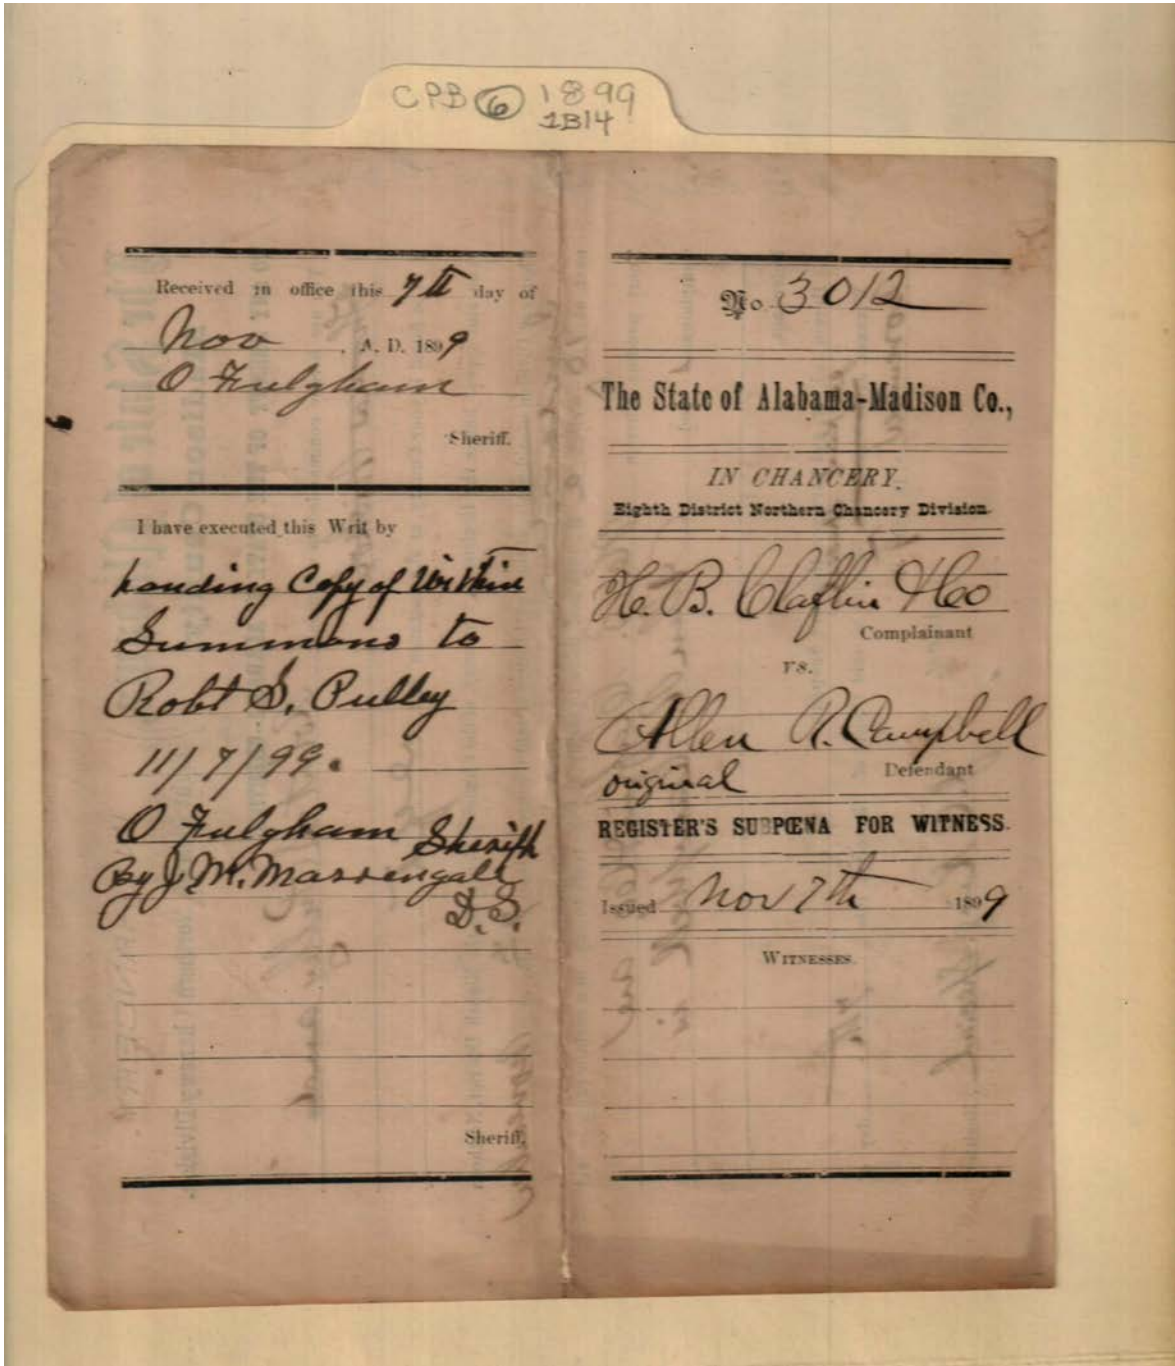 CPB 6 1899
1B14
Received in office this 7th day of
Nov , A. D. 1899
O Fulgham
Sheriff.
I have executed this Writ by
handing Copy of Within
Summons to
Robt S. Pulley
11/7/99.
O Fulgham Sheriff
By J. M. Massengale
D.S.
Sheriff.
No. 3012
The State of Alabama-Madison Co.,
IN CHANCERY.
Eighth District Northern Chancery Division.
H. B. Claflin & Co
Complainant
vs.
Allen R. Campbell
Defendant
original
REGISTER'S SUBPŒNA FOR WITNESS.
Issued Nov 7th 1899
WITNESSES.